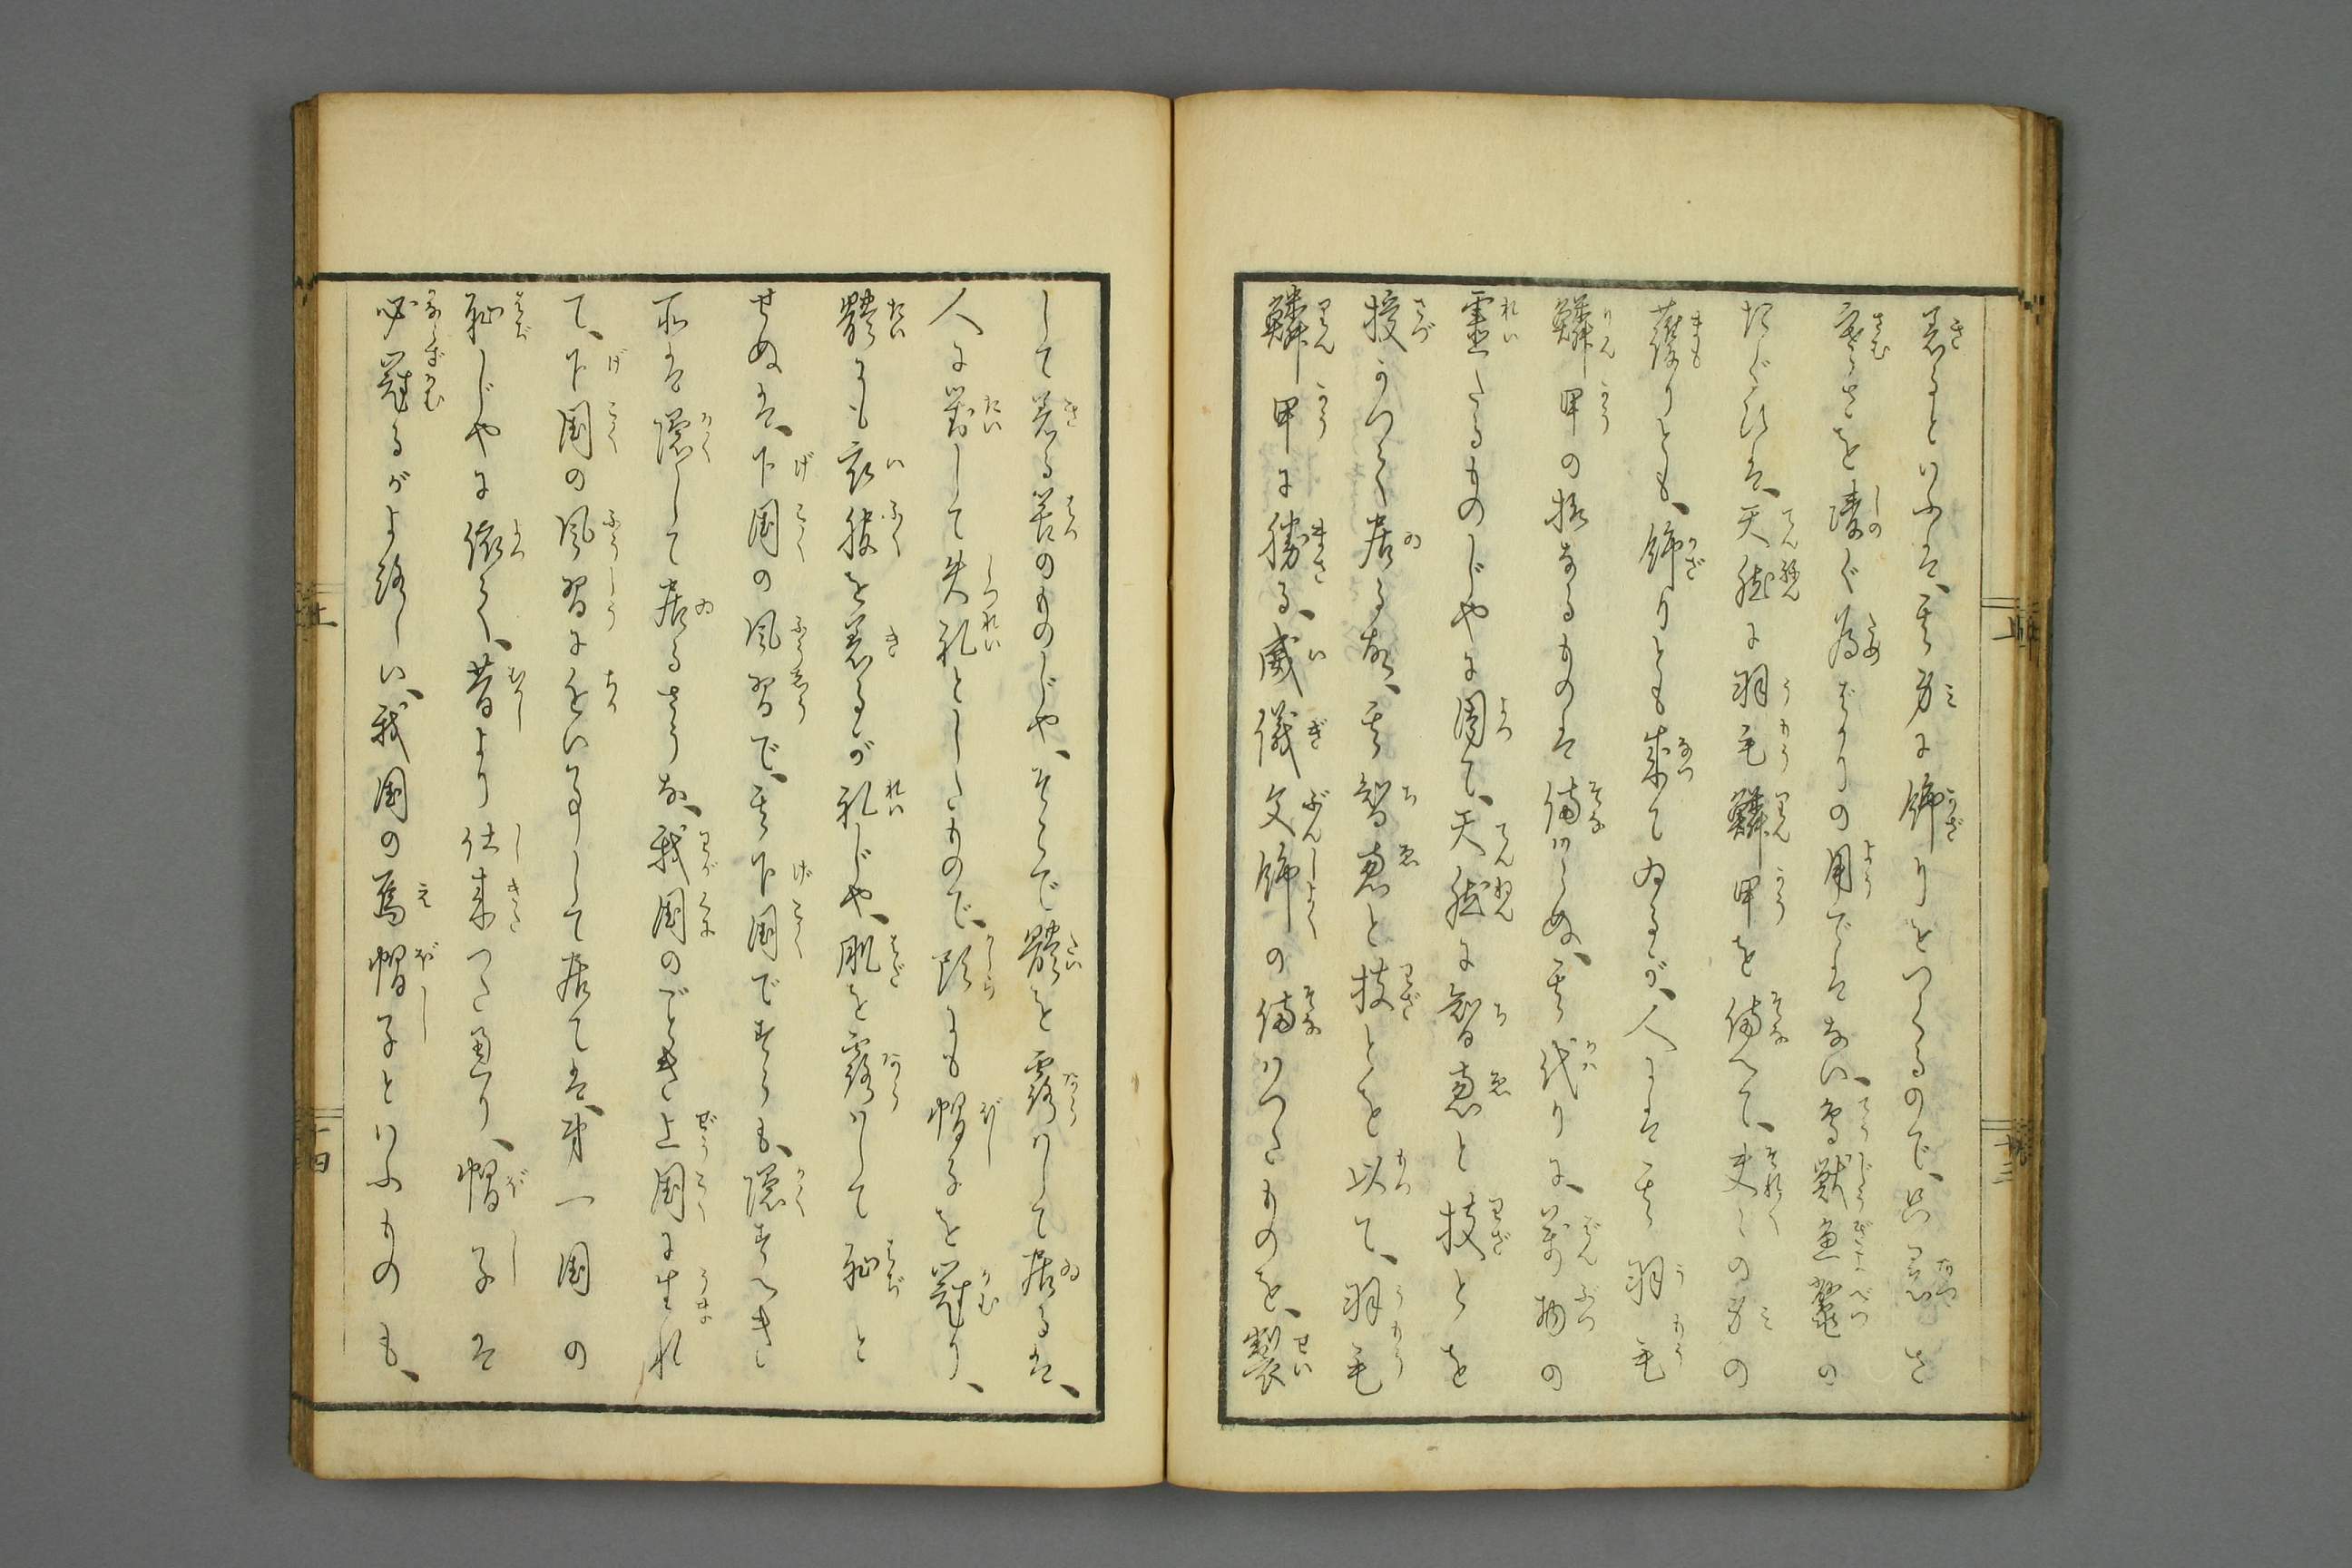 着るといふは、其身に飾りをつくるので、只悪さ
寒さを凌ぐ為ばかりの用ではない、鳥獣魚鼈の
たぐひは、天然に羽毛鱗甲を備へて、夫々の身の
護りとも、飾りとも成てゐるが、人には其羽毛
鱗甲の様なるものは備はらぬ、其代りに、萬物の
霊たるものじやに因て、天然に智恵と技とを
授かつて居る故、其智恵と技とを以て、羽毛
鱗甲に勝る、威儀文飾の備はつたものを、製
して着る筈のものじや、そこで體を露はして居るは、
人に對して失礼としたもので、頭にも帽子を冠り、
體にも衣服を着るが礼じや、肌を露はして恥と
せぬは、下国の風習で、其下国ですらも、隠すべき
所は隠して居るさうな、我国のごとき上国に生れ
て、下国の風習にをいおとして居ては、第一国の
恥じやに依て、昔より仕来つた通り、帽子は
必冠るがよろしい、我国の烏帽子といふものも、
上
十三
上
十四